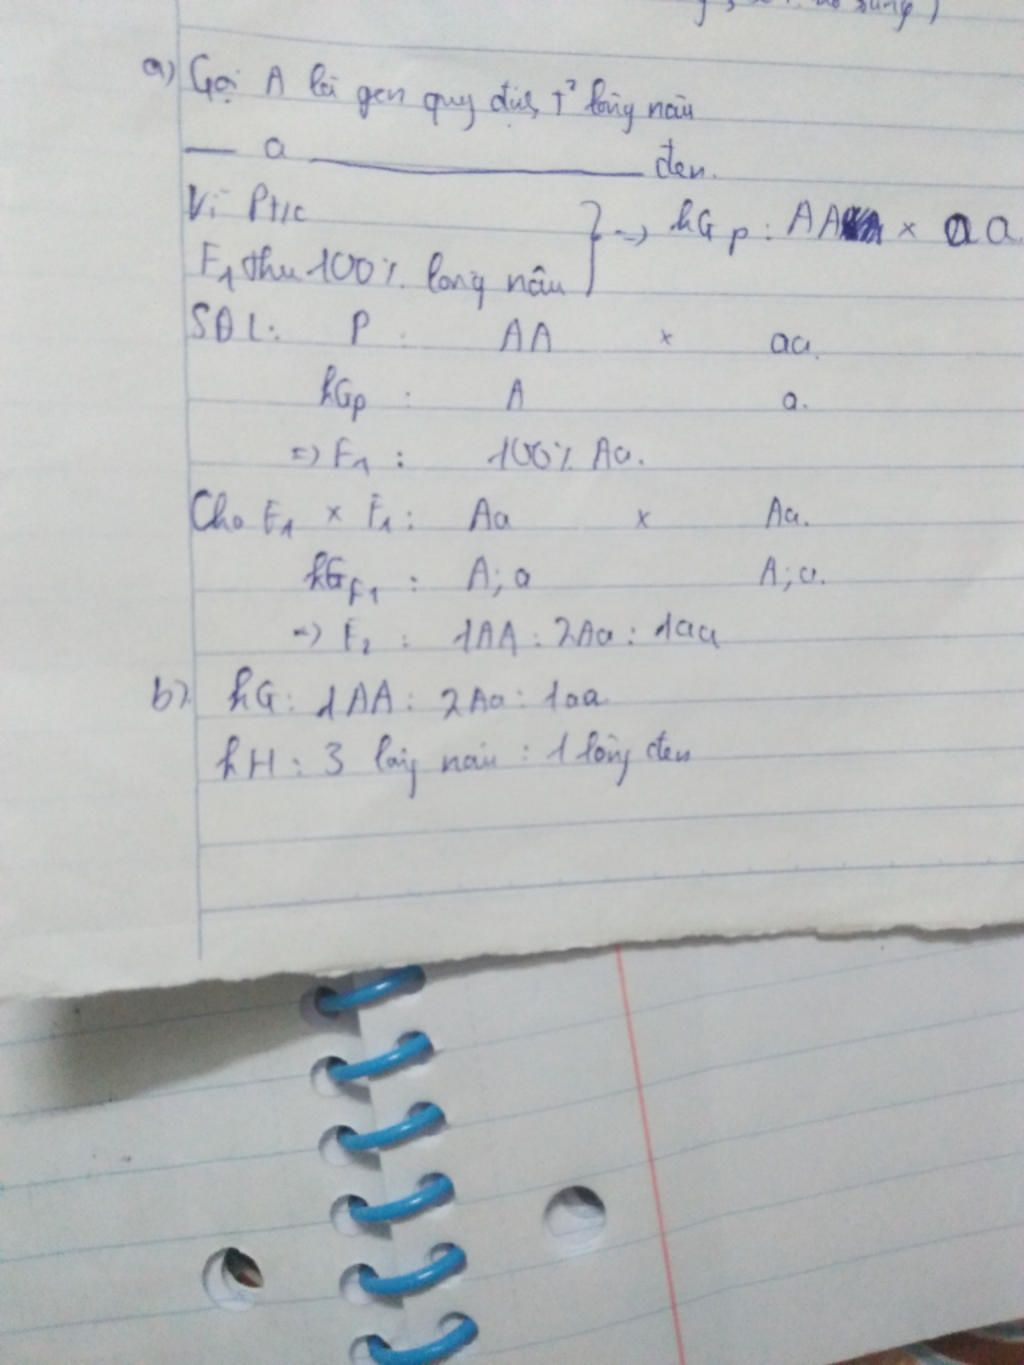 a) Gọi A là gen quy định T² lông nâu
— a ——— đen.
Vì Pt/c
F1 thu 100% lông nâu } => kG P : AA × aa
SĐL: P : AA × aa.
kGp : A a.
=> F1 : 100% Aa.
Cho F1 × F1 : Aa × Aa.
kG F1 : A; a A; a.
=> F2 : 1AA : 2Aa : 1aa
b) kG : 1AA : 2Aa : 1aa
kH : 3 lông nâu : 1 lông đen